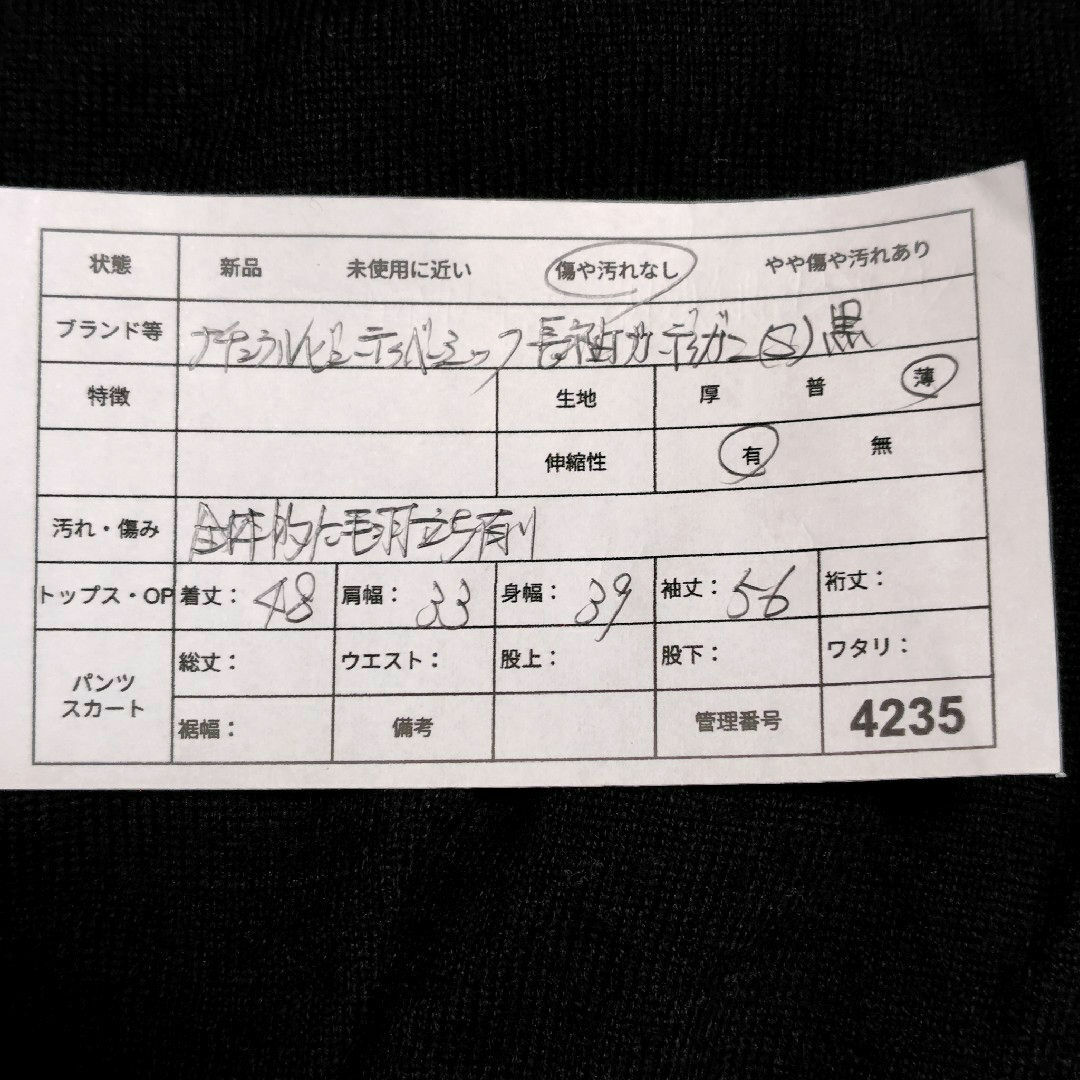 状態 新品 未使用に近い 傷や汚れなし やや傷や汚れあり
ブランド等 ナチュラルビューティーベーシック長袖カーディガン(S)黒
特徴 生地 厚 普 薄
伸縮性 有 無
汚れ・傷み 全体的に毛羽立ち有り
トップス・OP 着丈：48 肩幅：33 身幅：39 袖丈：56 裄丈：
パンツ スカート 総丈： ウエスト： 股上： 股下： ワタリ：
裾幅： 備考 管理番号 4235